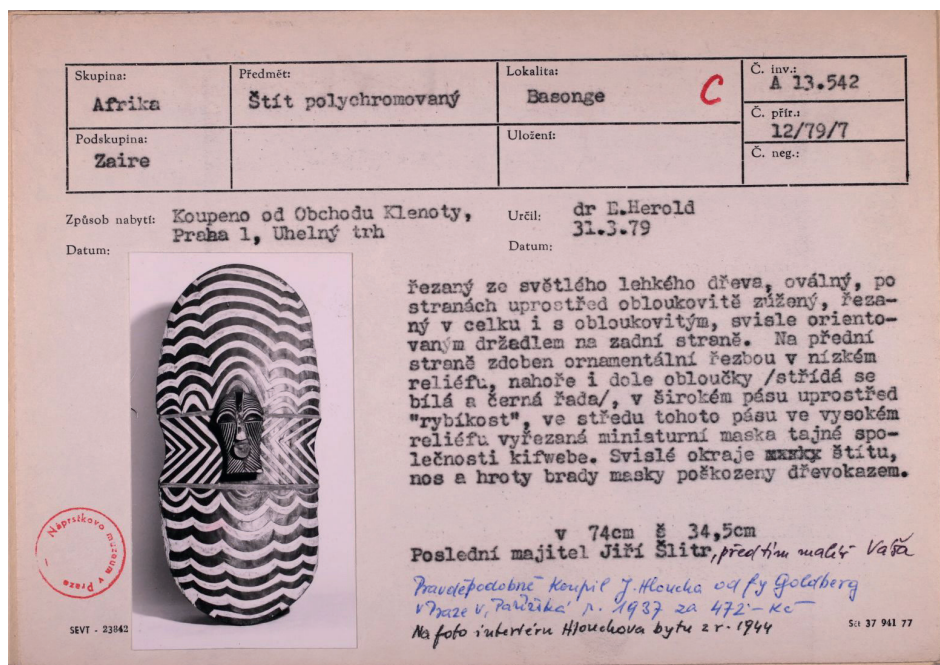 Skupina:
Afrika
Předmět:
Štít polychromovaný
Lokalita:
Basonge
C
Č. inv.:
A 13.542
Č. přír.:
12/79/7
Č. neg.:
Podskupina:
Zaire
Uložení:
Způsob nabytí: Koupeno od Obchodu Klenoty,
Praha 1, Uhelný trh
Datum:
Určil: dr E.Herold
31.3.79
Datum:
řezaný ze světlého lehkého dřeva, oválný, po
stranách uprostřed obloukovitě zúžený, řeza-
ný v celku i s obloukovitým, svisle oriento-
vaným držadlem na zadní straně. Na přední
straně zdoben ornamentální řezbou v nízkém
reliéfu, nahoře i dole obloučky /střídá se
bílá a černá řada/, v širokém pásu uprostřed
"rybíkost", ve středu tohoto pásu ve vysokém
reliéfu vyřezaná miniaturní maska tajné spo-
lečnosti kifwebe. Svislé okraje štítu,
nos a hroty brady masky poškozeny dřevokazem.
v 74cm š 34,5cm
Poslední majitel Jiří Šlitr, předtím malíř Vaša
Pravděpodobně koupil J. Hloucha od fy Goldberg
v Praze v Pařížské r. 1937 za 472 - Kč
Na foto interiéru Hlouchova bytu z r. 1944
Náprstkovo muzeum v Praze
SEVT - 23842
Sčt 37 941 77